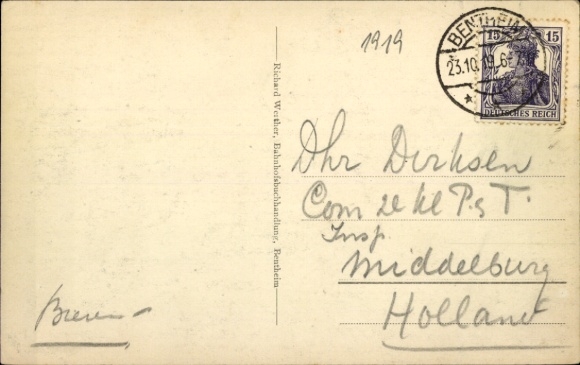 1919
BENTHEIM
23.10.19.6-7
15 15
DEUTSCHES REICH
Richard Werther, Bahnhofsbuchhandlung, Bentheim
Dhr Derksen
Com 2e kl P&T.
Insp.
Middelburg
Holland